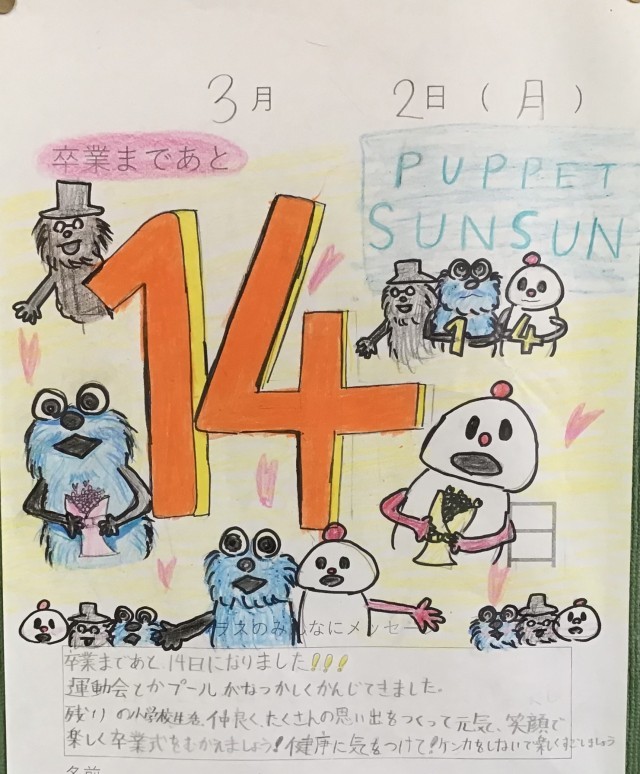 3月 2日(月)
卒業まであと
PUPPET
SUNSUN
14
1 4
日
ラネのみんなにメッセー
卒業まであと、14日になりました!!!
運動会とかプールがなつかしくかんじてきました。
残りの小学校生活、仲良く、たくさんの思い出をつくって元気、笑顔で
楽しく卒業式をむかえましょう!健康に気をつけて!ケンカをしないで楽しくすごしましょう
名前